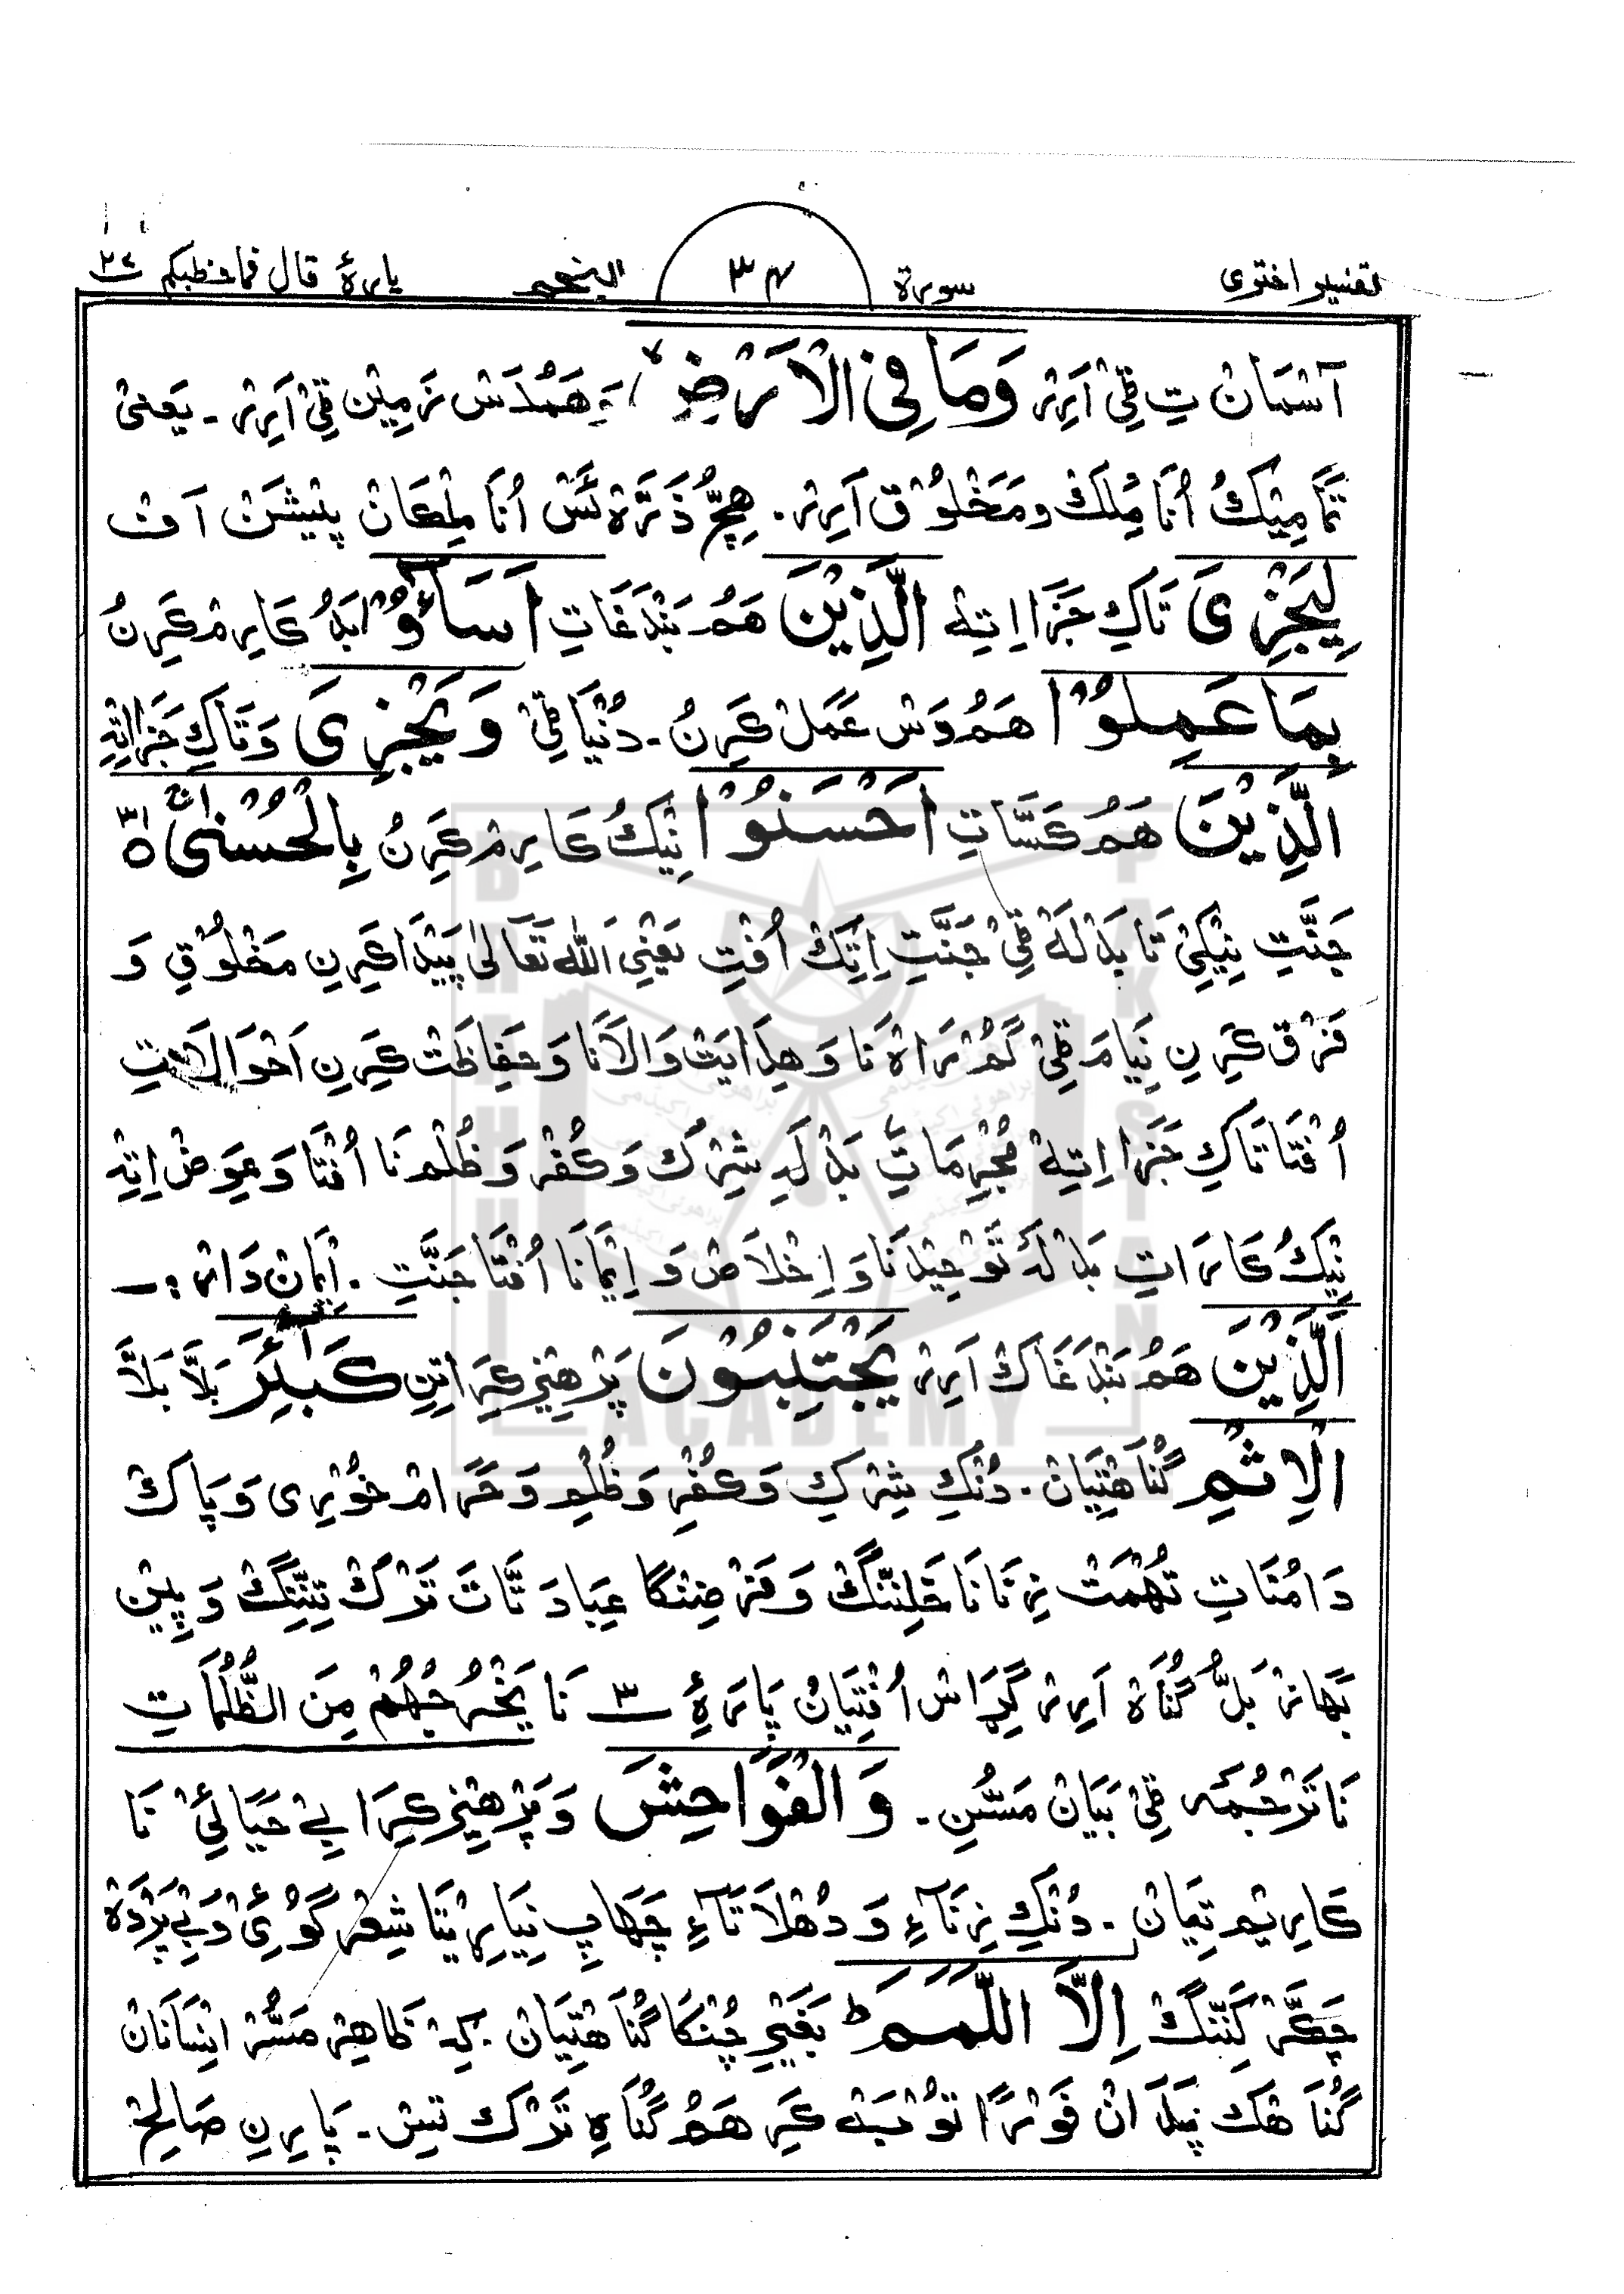 تفسیر اختری سورة ٣٤ النجم پارۀ قال فما خطبکم ٢٧
آسْمَانْ تِ ٹِیْ اَرِیْر وَمَا فِی الْاَرْضِ ۙ هَمْدَسْ زَمِیْن ٹِیْ اَرِیْر ۔ یَعنیْ
تَمَامِیْکُ اُنَا مِلْکْ و مَخْلُوْق اَرِیْر ۔ هِچُّ ذَرَّہْ ئَسْ اُنَا مِلِکَانْ پِیْشَنْ اَفْ
لِیَجْزِیَ تَاکِ جَزَا اِتِہْ الَّذِیْنَ هَمُ بَنْدَغَاتِ اَسَآءُوْا بَدُ کَارِیمْ کَرِنُ
بِمَا عَمِلُوْا هَمُ وَسْ عَمَلْ کَرِنُ ۔ دُنْیَا ٹِیْ وَیَجْزِیَ وَ تَاکِ جَزَا اِتِہِ
الَّذِیْنَ هَمُ کَسَّاتِ اَحْسَنُوْا نِیْکُ کَارِیمْ کَرِنُ بِالْحُسْنٰیۚ ٣١
جَنَّتِ نِیْکِیْ نَا بَدْلَہْ ٹِیْ جَنَّتِ اِتِکْ اُفْتِ یَعْنِی اَللّٰه تَعَالٰی پَیْدَا کَرِنِ مَخْلُوْقِ وَ
فَرْق کَرِنِ نِیَامَ ٹِیْ گُمْرَاہْ نَا وَ هِدَایَتْ وَالَانَا وَ حِفَاظَتْ کَرِنِ اَحْوَالَاتِ
اُفْتَا تَاکِ جَزَا اِتِہْ مُجْرِمَاتِ بَدْلَہِ شِرْکْ وَ کُفْر وَ ظُلْم نَا اُفْتَا وَ عِوَضْ اِتِہِ
نِیْکُ کَارَاتِ بَدْلَہْ تَوْحِیْد نَا وَ اِخْلَاصْ وَ اِیْمَانَا اُفْتَا جَنَّتِ ۔ اِیْمَانْ دَارْ :۔
اَلَّذِیْنَ هَمُ بَنْدَغَاکْ اَرِیْر یَجْتَنِبُوْنَ پَرْهِیْز کَرَ اتِنِ کَبٰٓئِرَ بَلَّا بَلَّا
الْاِثْمِ گُنَاهْتِیَانْ ۔ دُنْکِ شِرْکِ وَ کُفْرِ وَ ظُلْمِ وَ حَرَامْ خُوْرِی وَ پَاکْ
دَامُنَاتِ تُهْمَتْ زِنَا نَا خَلِنِّنْگْ وَ فَرْضِنْگَا عِبَادَتَاتَ تَرْکْ تِنِّنْگْ وَ پِیْن
بَهَازْ بَلُّ گُنَاہْ اَرِیْر گِڑَاسْ اُفْتِیَانْ پَارَۀِ ٣ نَا یُخْرِجُهُمْ مِنَ الظُّلُمَاتِ
نَا تَرْجُمَہ ٹِیْ بَیَانْ مَسُّنِ ۔ وَالْفَوَاحِشَ وَ پَرْهِیْز کِرَا بِیْ حَیَائِیْ نَا
کَارِیْم تِیَانْ ۔ دُنْکِ زِنَآءِ وَ دُهْلَاتَآءِ چَهَاپِ نِیَارِیْتَا شِعْر گَوْئِیْ وَ بِیْ پَرْدَہْ
چَکَّرْ کَنِنِّنْگْ اِلَّا اللَّمَمَ ؕ بَغَیْرِ چُنْکَا گُنَاهْتِیَانْ ۔ کِہْ ظَاهِرْ مَسُّر اِنْسَانَانْ
گُنَاهکْ پَدَ اَنْ فَوْرًا تَوْبَہْ کَرِ هَمُ گُنَاہِ تَرْک تِسْ ۔ پَارِنِ صَالِحْ